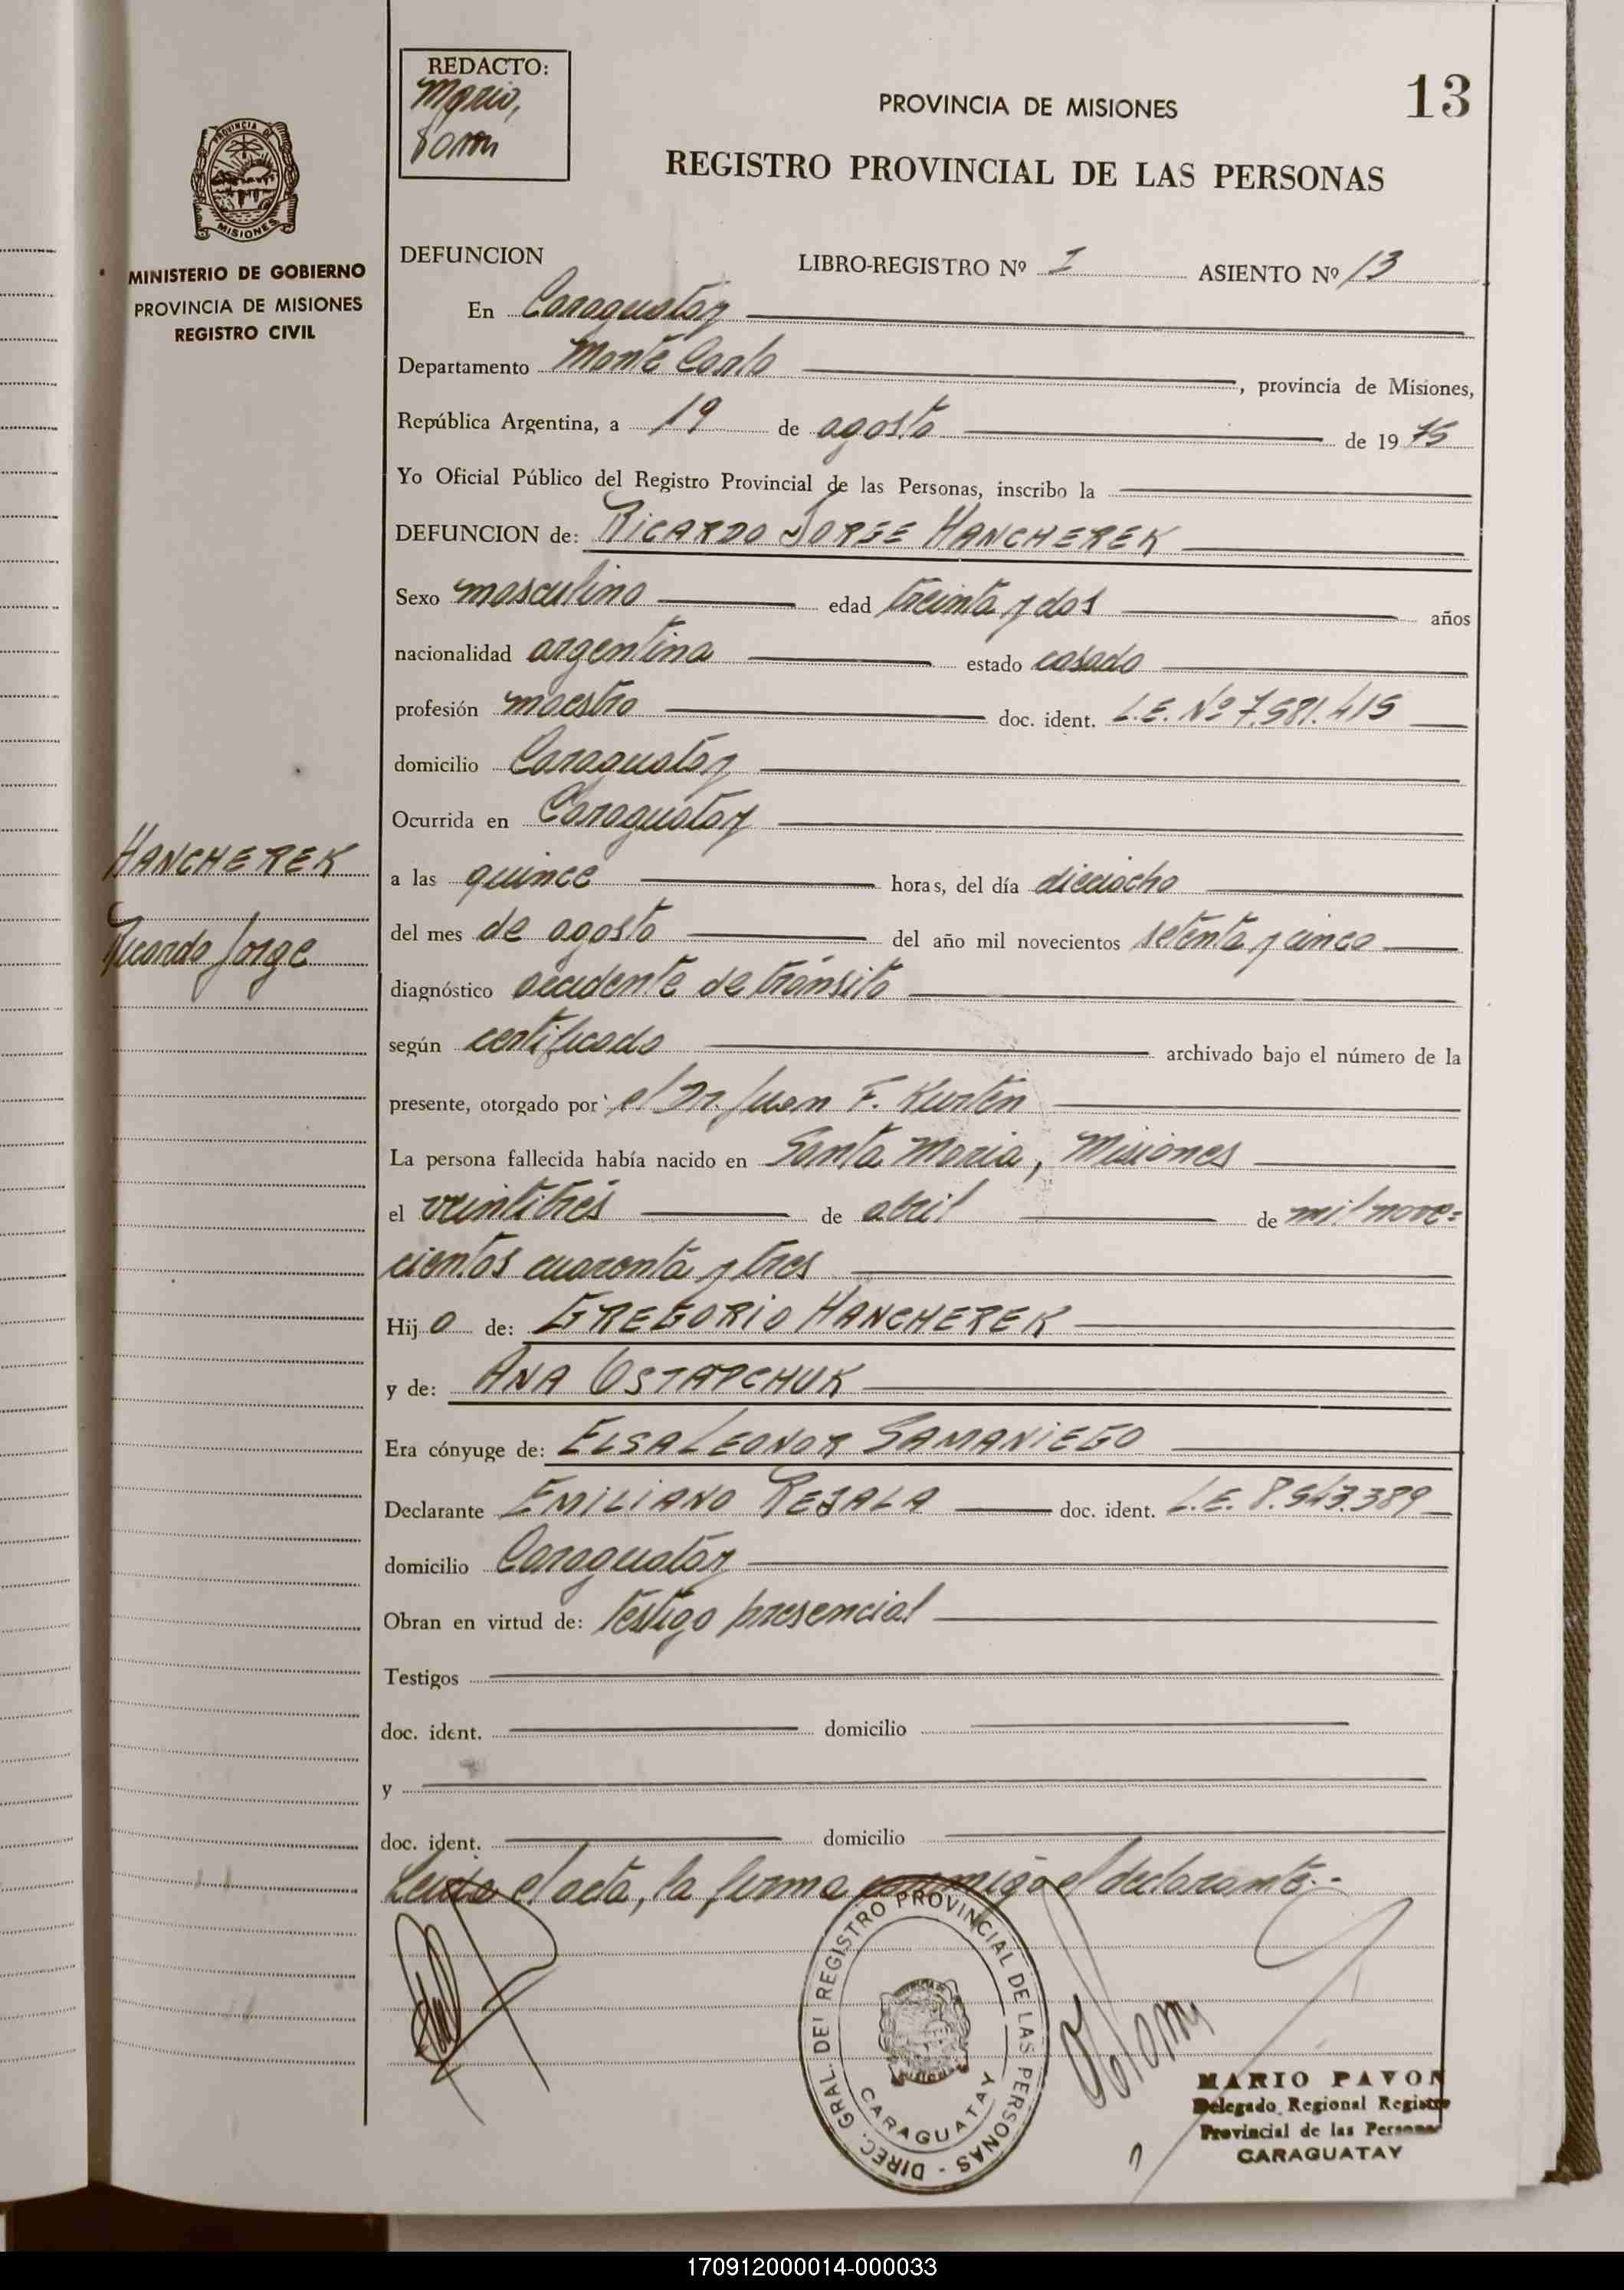 REDACTO:
Mario,
PROVINCIA DE MISIONES
13
REGISTRO PROVINCIAL DE LAS PERSONAS
PROVINCIA DE
MISIONES
MINISTERIO DE GOBIERNO
PROVINCIA DE MISIONES
REGISTRO CIVIL
DEFUNCION LIBRO-REGISTRO Nº I ASIENTO Nº 13
En Caraguatay
Departamento Monte Carlo, provincia de Misiones,
República Argentina, a 19 de agosto de 1975
Yo Oficial Público del Registro Provincial de las Personas, inscribo la
DEFUNCION de: RICARDO JORGE HANCHEREK
Sexo masculino edad treinta y dos años
nacionalidad argentina estado casado
profesión maestro doc. ident. L.E. Nº 7.581.415
domicilio Caraguatay
Ocurrida en Caraguatay
HANCHEREK
a las quince horas, del día dieciocho
Ricardo Jorge
del mes de agosto del año mil novecientos setenta y cinco
diagnóstico accidente de tránsito
según certificado archivado bajo el número de la
presente, otorgado por el Dr. Juan F. Kurten
La persona fallecida había nacido en Santa Maria, Misiones
el veintitrés de abril de mil nove=
cientos cuarenta y tres
Hijo de: GREGORIO HANCHEREK
y de: ANA OSTAPCHUK
Era cónyuge de: ELSA LEONOR SAMANIEGO
Declarante EMILIANO REJALA doc. ident. L.E. 8.543.389
domicilio Caraguatay
Obran en virtud de: testigo presencial
Testigos
doc. ident. domicilio
y
doc. ident. domicilio
Leída el acta, la firma conmigo el declarante.-
DIREC. GRAL. DEL REGISTRO PROVINCIAL DE LAS PERSONAS -
CARAGUATAY
MARIO PAVON
Delegado Regional Registro
Provincial de las Personas
CARAGUATAY
170912000014-000033